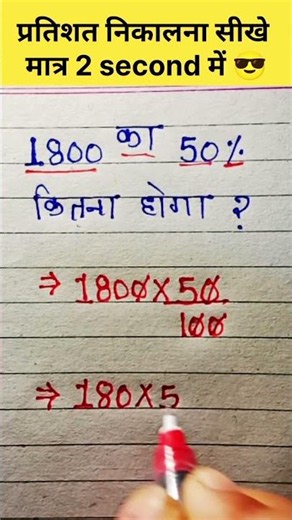 प्रतिशत निकालना सीखे
मात्र 2 second में 😎
1800 का 50%
कितना होगा ?
⇒ 1800 × 50
100
⇒ 180 × 5